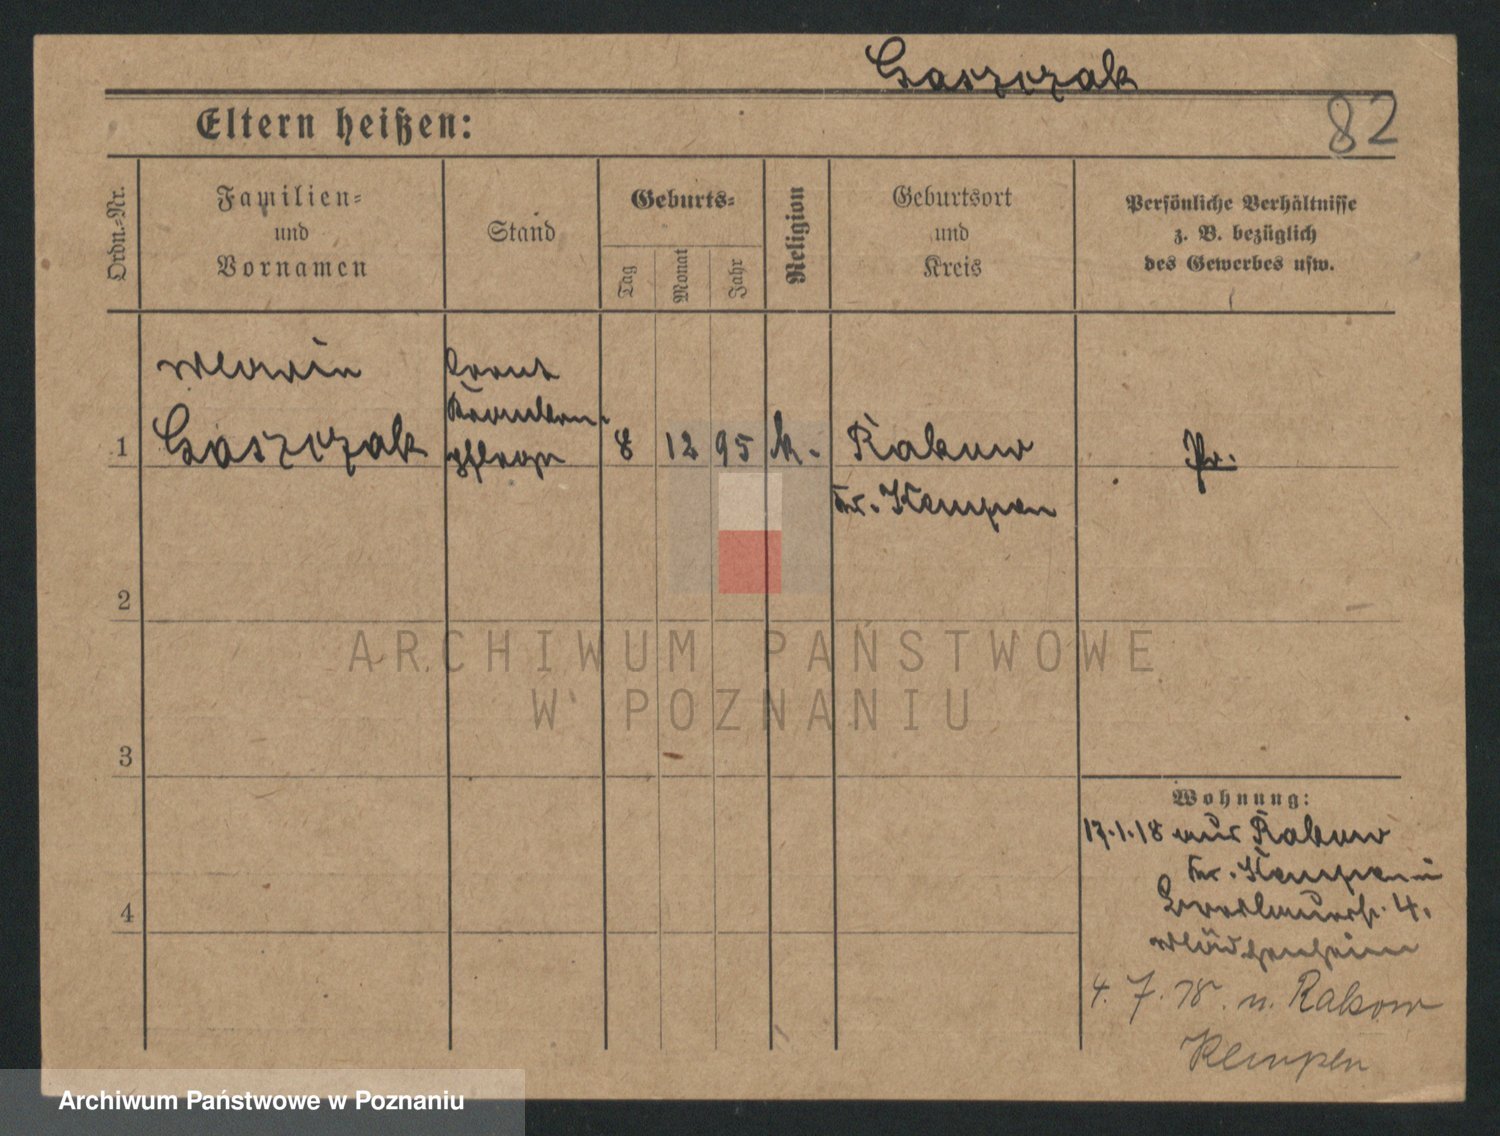 Gaszczak
82
Eltern heißen:
Ordn.-Nr.
Familien-
und
Vornamen
Stand
Geburts-
Tag
Monat
Jahr
Religion
Geburtsort
und
Kreis
Persönliche Verhältnisse
z. B. bezüglich
des Gewerbes usw.
Marie
Kranken-
pflege
1 Gaszczak 8 12 95 k. Rakow Pr.
Kr. Kempen
2
ARCHIWUM PAŃSTWOWE
W POZNANIU
3
Wohnung:
17.1.18 aus Rakow
Kr. Kempen
4.
4
Mädchenheim
4.7.18. n. Rakow
Kempen
Archiwum Państwowe w Poznaniu